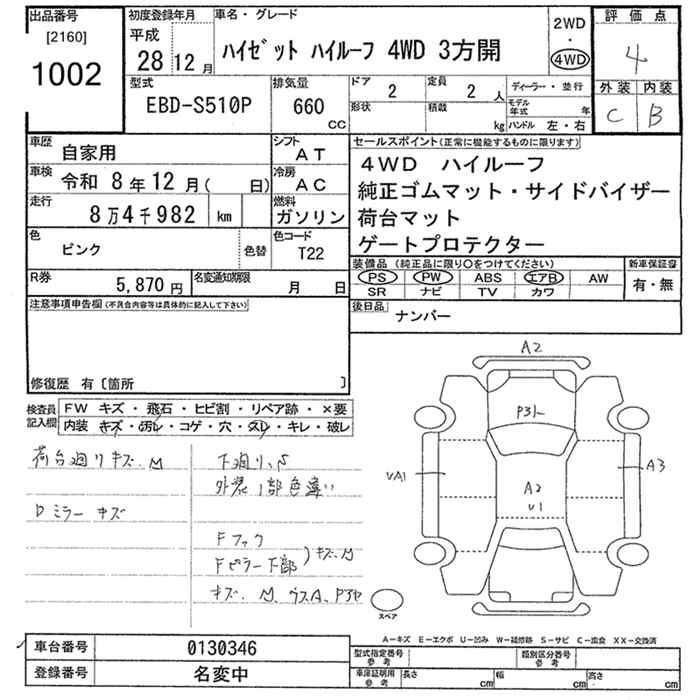 出品番号
[2160]
1002
初度登録年月
平成
28年12月
車名・グレード
ハイゼット ハイルーフ 4WD 3方開
2WD
・
4WD
評価点
4
外装 内装
C B
型式
EBD-S510P
排気量
660
CC
ドア
2
定員
2人
ディーラー・並行
形状
積載
kg
モデル年式 年
ハンドル 左・右
車歴
自家用
シフト
AT
車検
令和 8年12月( 日)
冷房
AC
走行
8万4千982 km
燃料
ガソリン
色
ピンク
色替
色コード
T22
R券
5,870円
名変通知期限
月 日
セールスポイント(正常に機能するものに限ります)
4WD ハイルーフ
純正ゴムマット・サイドバイザー
荷台マット
ゲートプロテクター
装備品 (純正品に限り○をつけてください)
PS PW ABS エアB AW
SR ナビ TV カワ
新車保証書
有・無
後日品
ナンバー
注意事項申告欄(不具合内容等は具体的に記入して下さい)
修復歴 有〔箇所 〕
検査員
記入欄
FW キズ・飛石・ヒビ割・リペア跡・×要
内装 キズ・汚レ・コゲ・穴・スレ・キレ・破レ
荷台廻りキズ、M
Dミラー キズ
下廻り、S
外装1部色違い
Fフック
Fピラー下部
キズ、M
キズ、M
A2
P3
A2
U1
A3
スペア
A-キズ E-エクボ U-凹み W-補修跡 S-サビ C-腐食 XX-交換済
車台番号
0130346
登録番号
名変中
型式指定番号
参考
類別区分番号
参考
車庫証明用
参考
長さ cm
幅 cm
高さ cm